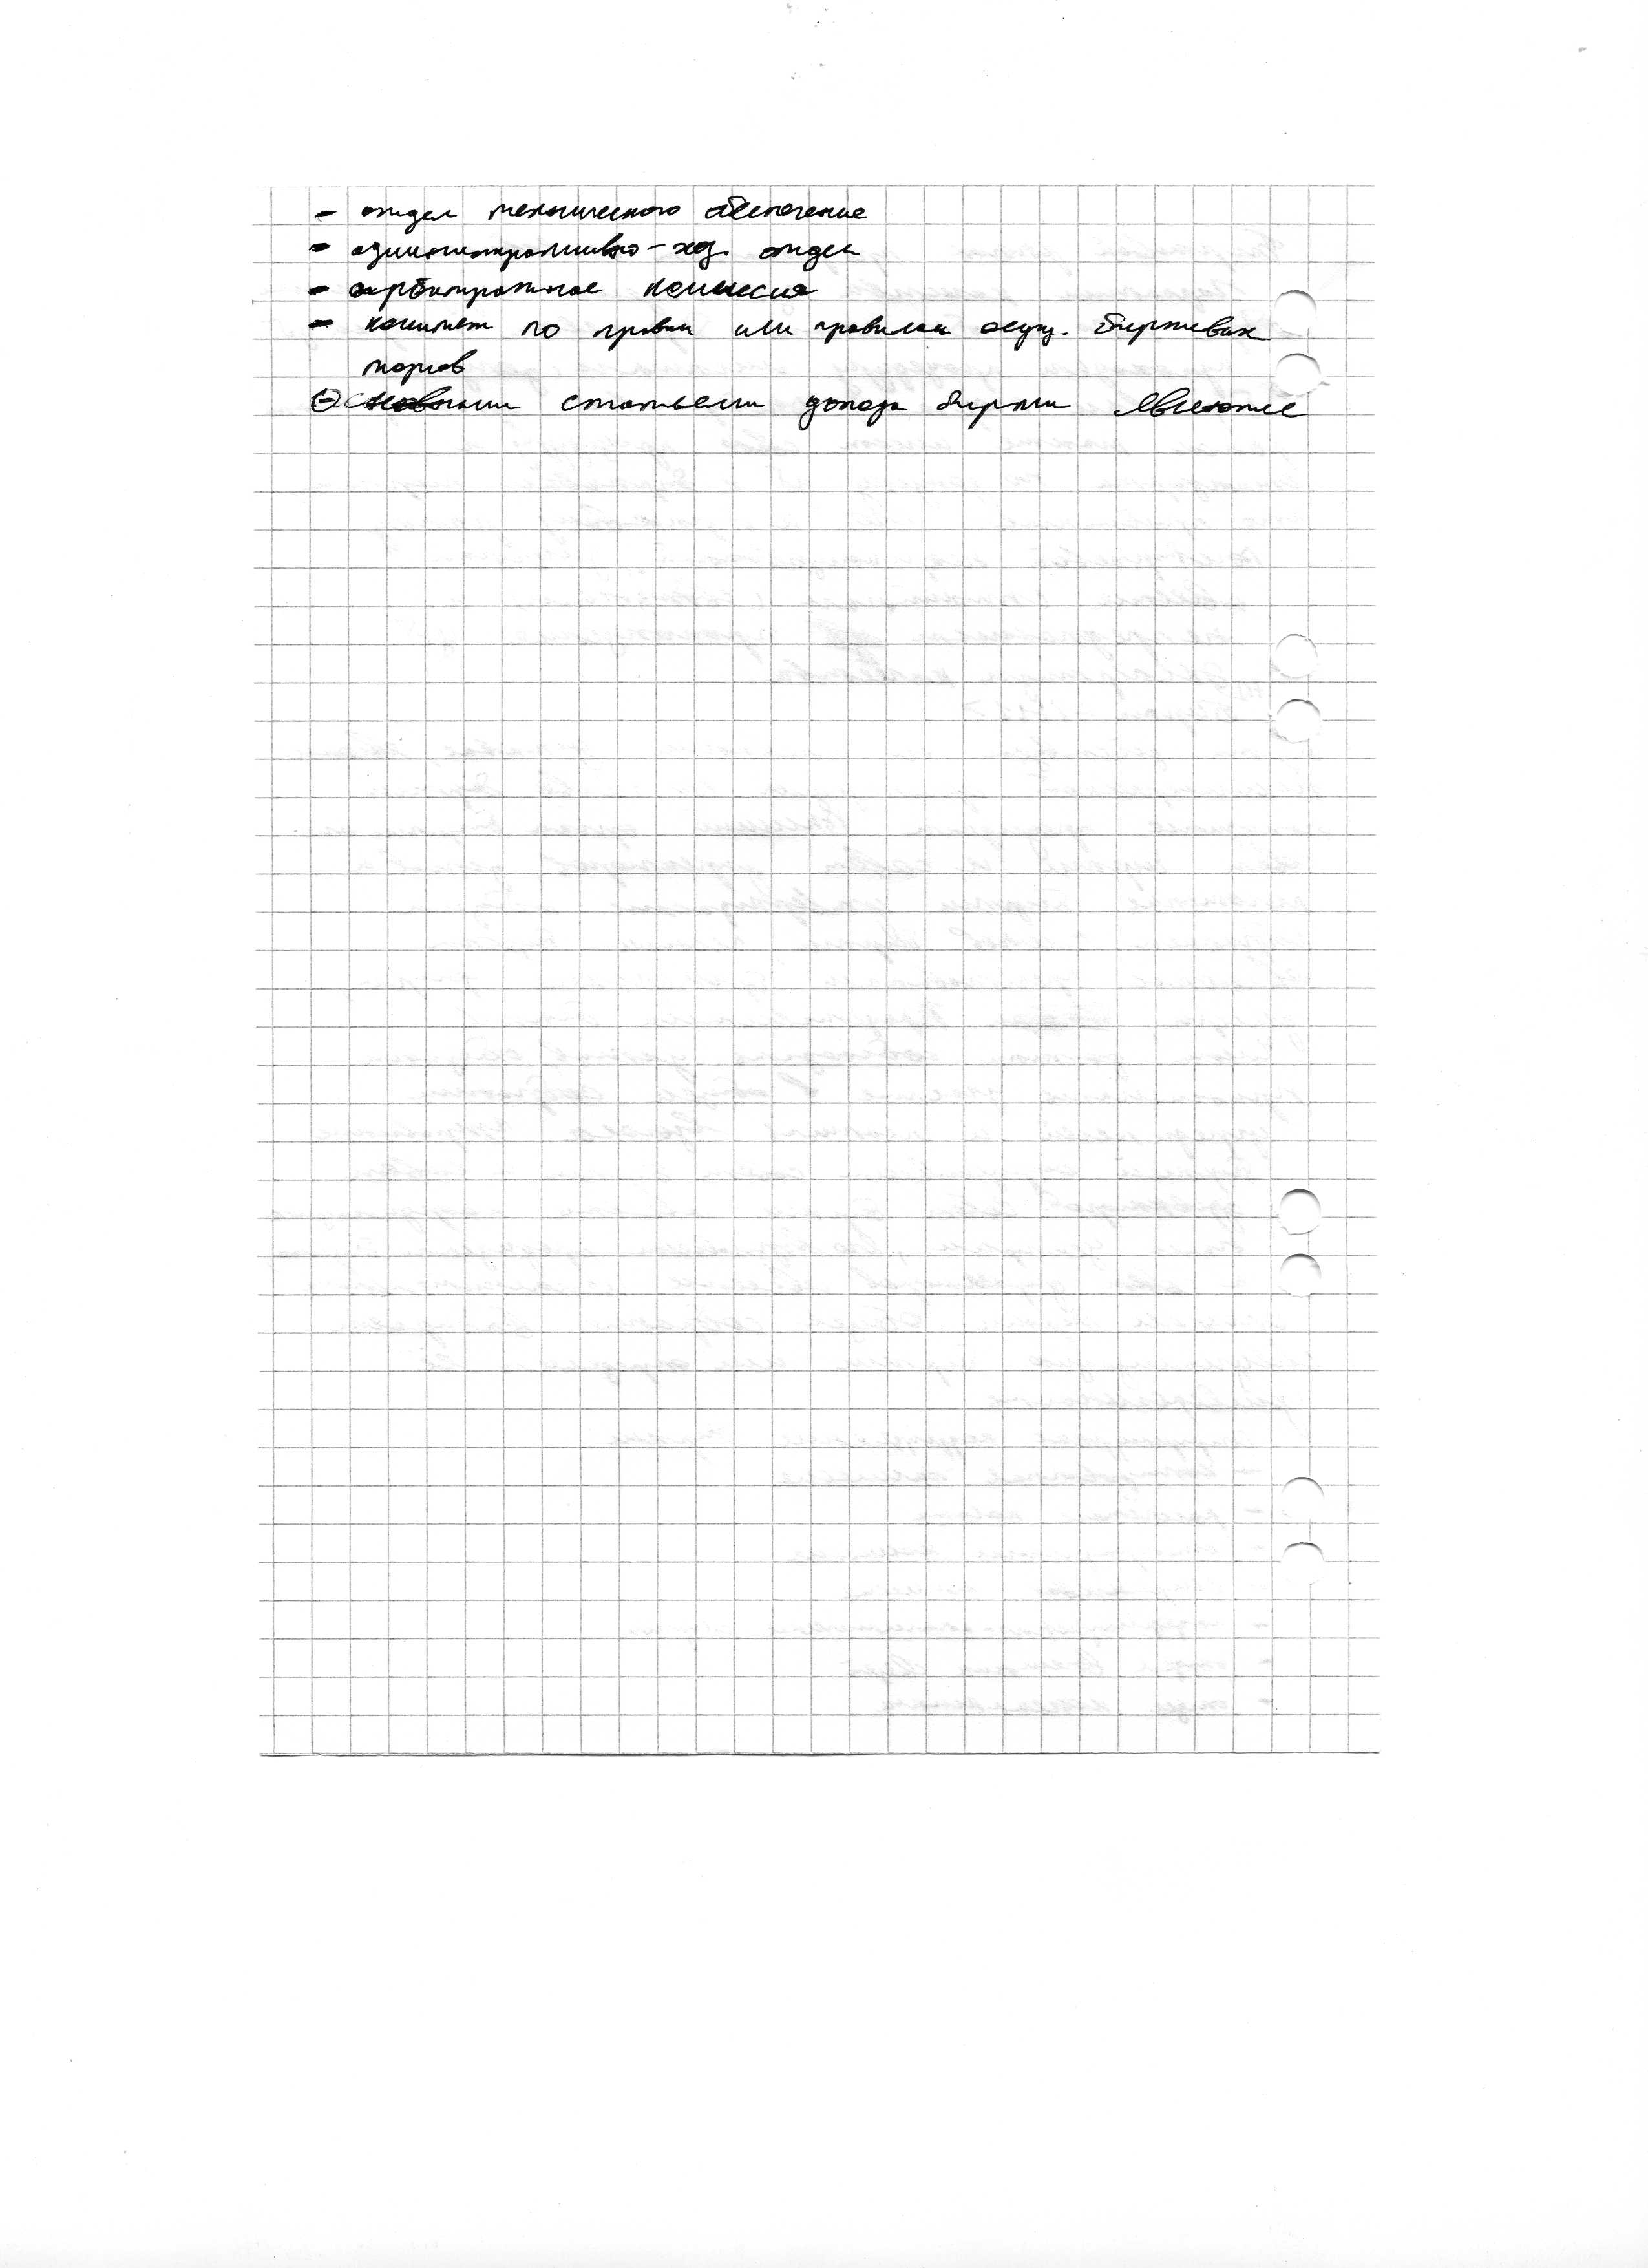 - отдел технического обеспечение
- административно-хоз. отдел
- арбитражное комиссия
- комитет по правам или правилам осущ. биржевых
торгов
Основными статьями дохода биржи являются